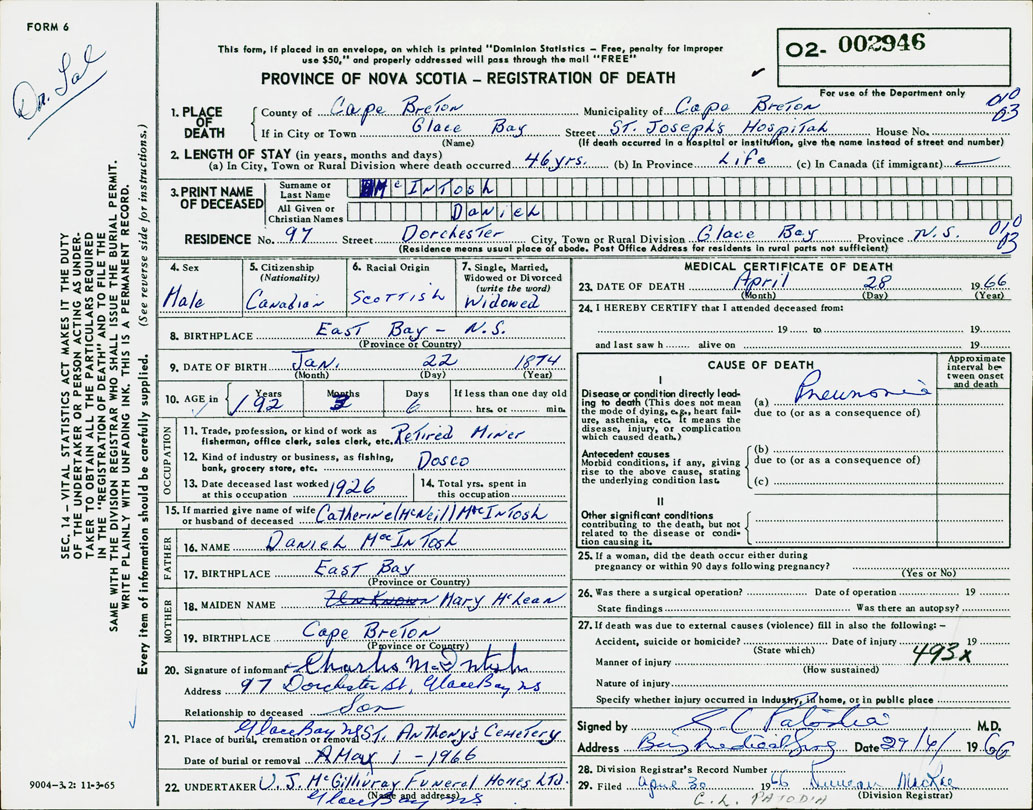 FORM 6
Dr. Sal
This form, if placed in an envelope, on which is printed "Dominion Statistics – Free, penalty for improper
use $50," and properly addressed will pass through the mail "FREE"
O2- 002946
PROVINCE OF NOVA SCOTIA – REGISTRATION OF DEATH
For use of the Department only
1. PLACE OF DEATH County of Cape Breton Municipality of Cape Breton 010 03
If in City or Town Glace Bay Street St. Joseph's Hospital House No.
(Name) (If death occurred in a Hospital or institution, give the name instead of street and number)
2. LENGTH OF STAY (in years, months and days)
(a) In City, Town or Rural Division where death occurred 46 yrs. (b) In Province Life (c) In Canada (if immigrant)
3. PRINT NAME OF DECEASED Surname or Last Name McIntosh
All Given or Christian Names Daniel
RESIDENCE No. 97 Street Dorchester City, Town or Rural Division Glace Bay Province N.S. 010 03
(Residence means usual place of abode. Post Office Address for residents in rural parts not sufficient)
SEC. 14 – VITAL STATISTICS ACT MAKES IT THE DUTY
OF THE UNDERTAKER OR PERSON ACTING AS UNDER-
TAKER TO OBTAIN ALL THE PARTICULARS REQUIRED
IN THE "REGISTRATION OF DEATH" AND TO FILE THE
SAME WITH THE DIVISION REGISTRAR WHO SHALL ISSUE THE BURIAL PERMIT.
WRITE PLAINLY WITH UNFADING INK. THIS IS A PERMANENT RECORD.
Every item of information should be carefully supplied. (See reverse side for instructions.)
4. Sex Male
5. Citizenship (Nationality) Canadian
6. Racial Origin Scottish
7. Single, Married, Widowed or Divorced (write the word) Widowed
8. BIRTHPLACE East Bay – N.S.
(Province or Country)
9. DATE OF BIRTH Jan. 22 1874
(Month) (Day) (Year)
10. AGE in Years 92 Months 3 Days 6 If less than one day old hrs. or min.
OCCUPATION
11. Trade, profession, or kind of work as fisherman, office clerk, sales clerk, etc. Retired Miner
12. Kind of industry or business, as fishing, bank, grocery store, etc. Dosco
13. Date deceased last worked at this occupation 1926
14. Total yrs. spent in this occupation
15. If married give name of wife or husband of deceased Catherine (McNeil) MacIntosh
FATHER
16. NAME Daniel MacIntosh
17. BIRTHPLACE East Bay
(Province or Country)
MOTHER
18. MAIDEN NAME Unknown Mary McLean
19. BIRTHPLACE Cape Breton
(Province or Country)
20. Signature of informant Charles McIntosh
Address 97 Dorchester St, Glace Bay NS
Relationship to deceased Son
21. Place of burial, cremation or removal Glace Bay NS St. Anthony's Cemetery
Date of burial or removal May 1 - 1966
22. UNDERTAKER V. J. McGillivray Funeral Homes Ltd.
(Name and address) Glace Bay NS
9004–3.2: 11-3-65
MEDICAL CERTIFICATE OF DEATH
23. DATE OF DEATH April 28 1966
(Month) (Day) (Year)
24. I HEREBY CERTIFY that I attended deceased from:
19 to 19
and last saw h alive on 19
CAUSE OF DEATH
Approximate interval between onset and death
I
Disease or condition directly leading to death (This does not mean the mode of dying, e.g., heart failure, asthenia, etc. It means the disease, injury, or complication which caused death.)
(a) Pneumonia
due to (or as a consequence of)
Antecedent causes
Morbid conditions, if any, giving rise to the above cause, stating the underlying condition last.
(b)
due to (or as a consequence of)
(c)
II
Other significant conditions
contributing to the death, but not related to the disease or condition causing it.
25. If a woman, did the death occur either during
pregnancy or within 90 days following pregnancy?
(Yes or No)
26. Was there a surgical operation? Date of operation 19
State findings Was there an autopsy?
27. If death was due to external causes (violence) fill in also the following: –
Accident, suicide or homicide? Date of injury 19
(State which) 493x
Manner of injury
(How sustained)
Nature of injury
Specify whether injury occurred in industry, in home, or in public place
Signed by S. C. Patodia M.D.
Address Bay Medical Date 29/4/ 1966
28. Division Registrar's Record Number
29. Filed April 30 1966 Duncan MacRae
(Division Registrar)
C. L. PATODIA